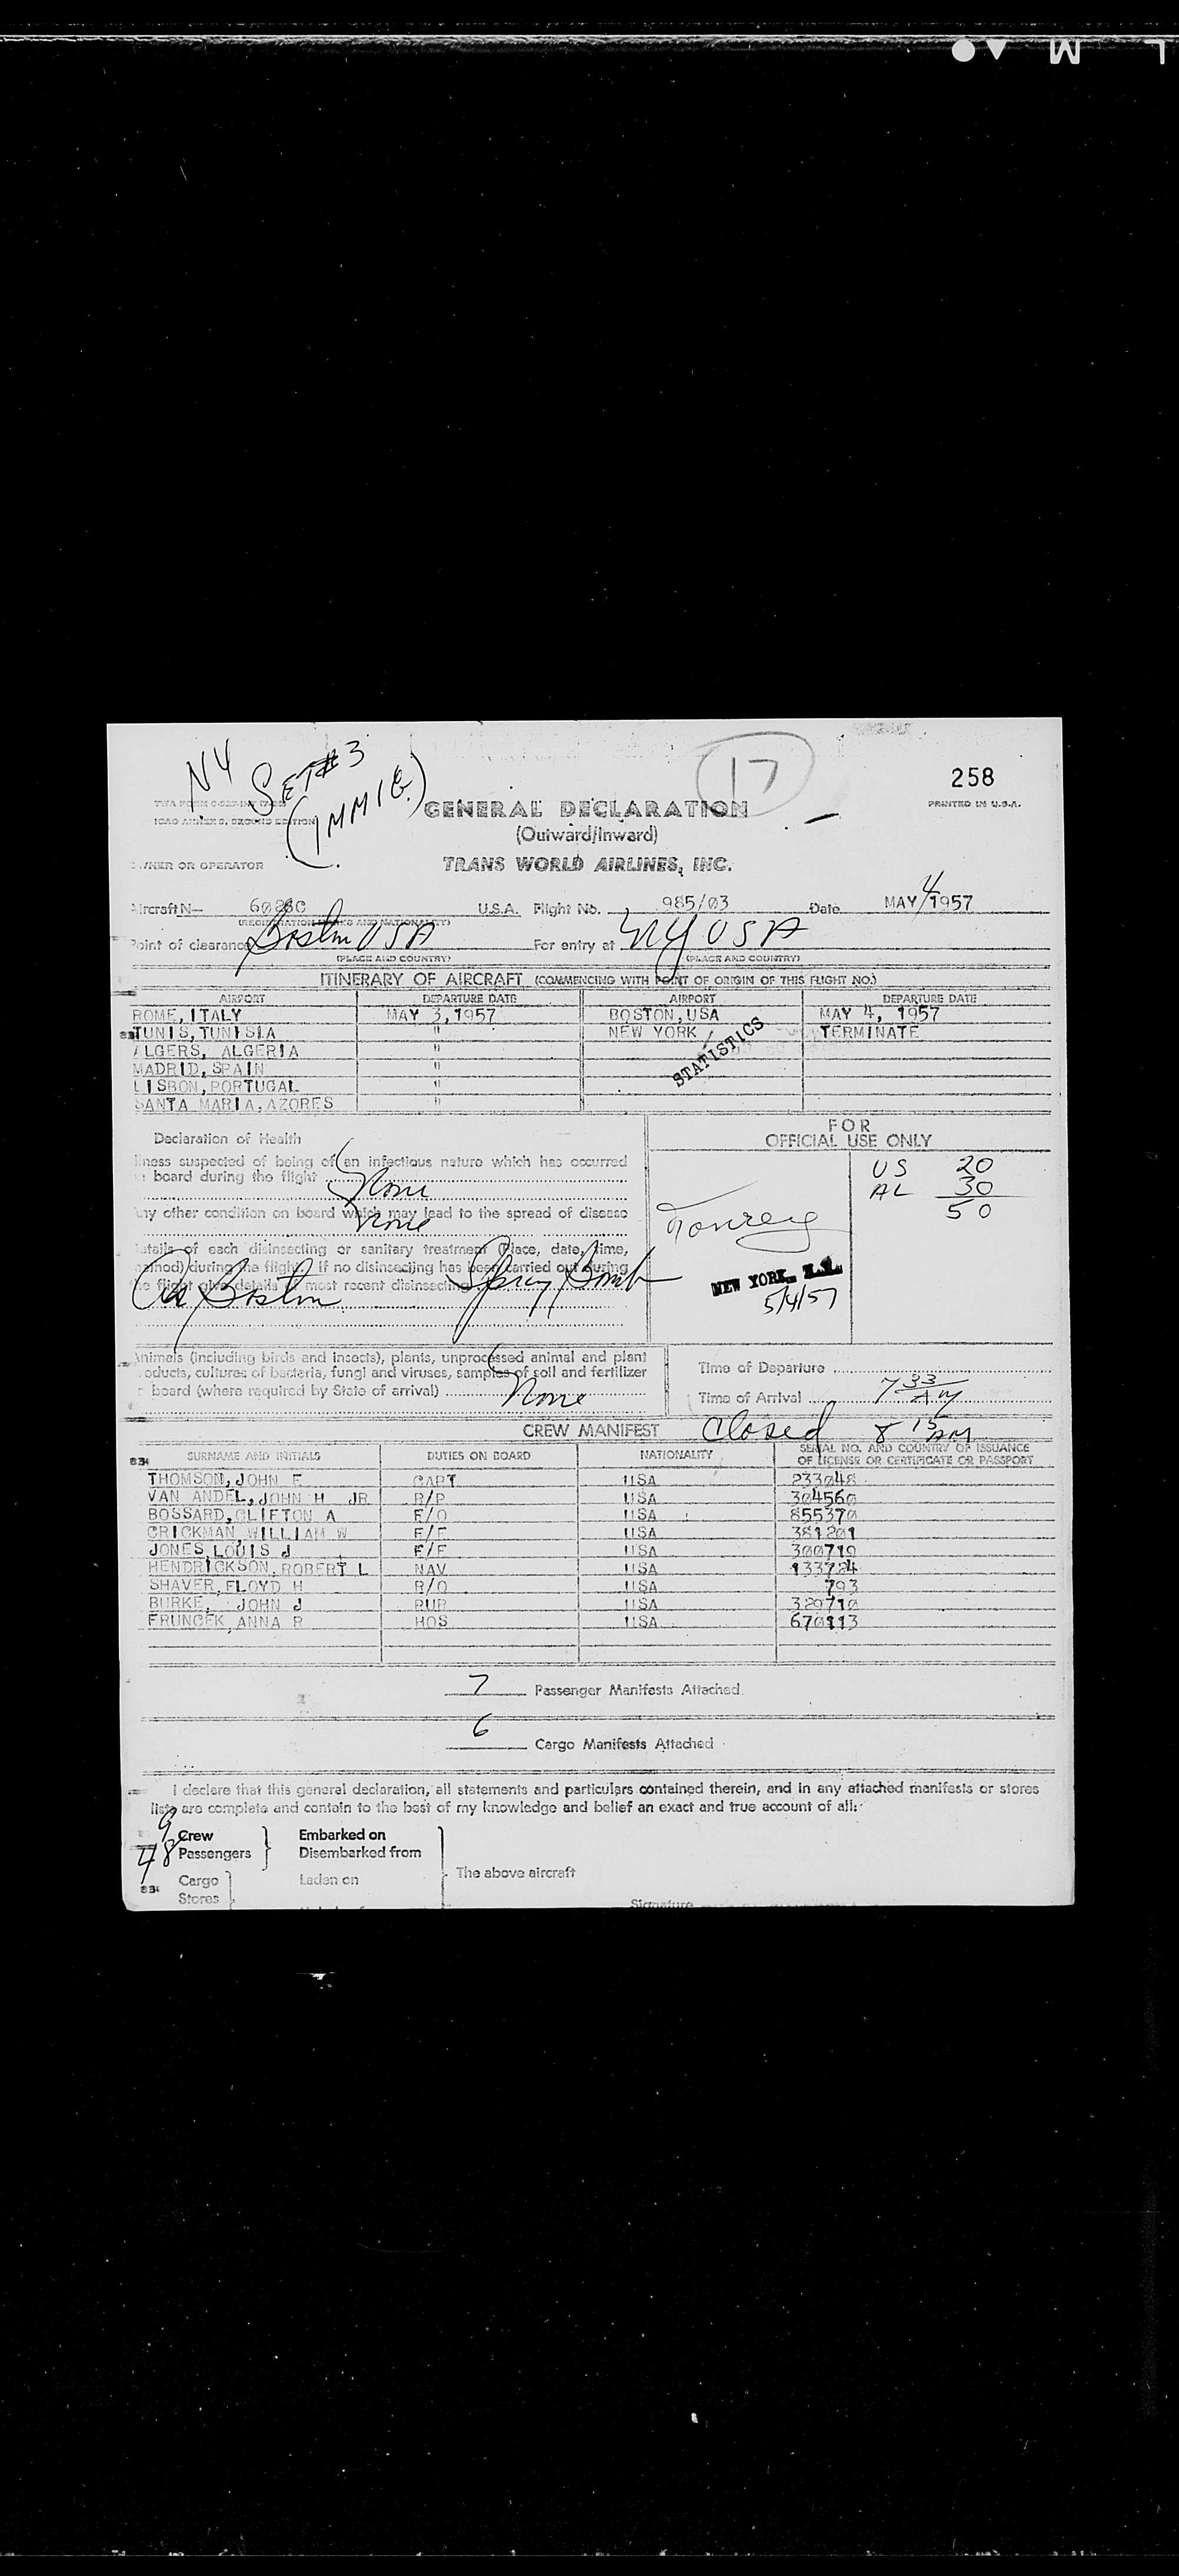 L M
NY SET#3
(IMMIG.)
17
258
PRINTED IN U.S.A.
ICAO ANNEX 9, SECOND EDITION
GENERAL DECLARATION
(Outward/Inward)
OWNER OR OPERATOR TRANS WORLD AIRLINES, INC.
Aircraft N— U.S.A. Flight No. 985/03 Date MAY 4 1957
(REGISTRATION MARKS AND NATIONALITY)
Point of clearance Boston USA For entry at NY USA
(PLACE AND COUNTRY) (PLACE AND COUNTRY)
ITINERARY OF AIRCRAFT (COMMENCING WITH POINT OF ORIGIN OF THIS FLIGHT NO.)
AIRPORT DEPARTURE DATE AIRPORT DEPARTURE DATE
ROME, ITALY MAY 3,1957 BOSTON,USA MAY 4, 1957
TUNIS,TUNISIA " NEW YORK TERMINATE
ALGERS, ALGERIA "
MADRID,SPAIN "
LISBON,PORTUGAL "
SANTA MARIA,AZORES "
STATISTICS
Declaration of Health
FOR
OFFICIAL USE ONLY
illness suspected of being of an infectious nature which has occurred
on board during the flight None
Any other condition on board which may lead to the spread of disease
None
Details of each disinsecting or sanitary treatment (Place, date, time,
method) during the flight. If no disinsecting has been carried out during
the flight give details of most recent disinsecting
Boston Spray Bomb
US 20
AL 30
50
NEW YORK, N.Y.
5/4/57
Animals (including birds and insects), plants, unprocessed animal and plant
products, cultures of bacteria, fungi and viruses, samples of soil and fertilizer
on board (where required by State of arrival) None
Time of Departure
Time of Arrival 7 33 AM
CREW MANIFEST Closed 8 15 AM
SURNAME AND INITIALS DUTIES ON BOARD NATIONALITY SERIAL NO. AND COUNTRY OF ISSUANCE OF LICENSE OR CERTIFICATE OR PASSPORT
THOMSON, JOHN F CAPT USA 233048
VAN ANDEL, JOHN H JR R/P USA 304560
BOSSARD,CLIFTON A F/O USA 855370
CRICKMAN WILLIAM W F/E USA 381201
JONES LOUIS J F/E USA 300719
HENDRICKSON,ROBERT L NAV USA 133724
SHAVER,FLOYD H R/O USA 793
BURKE, JOHN J PUR USA 329710
FRUNCEK ANNA R HOS USA 670113
7 Passenger Manifests Attached
6 Cargo Manifests Attached
I declare that this general declaration, all statements and particulars contained therein, and in any attached manifests or stores
lists are complete and contain to the best of my knowledge and belief an exact and true account of all:
9 Crew Embarked on
48 Passengers Disembarked from
The above aircraft
Cargo Laden on
Stores
Signature